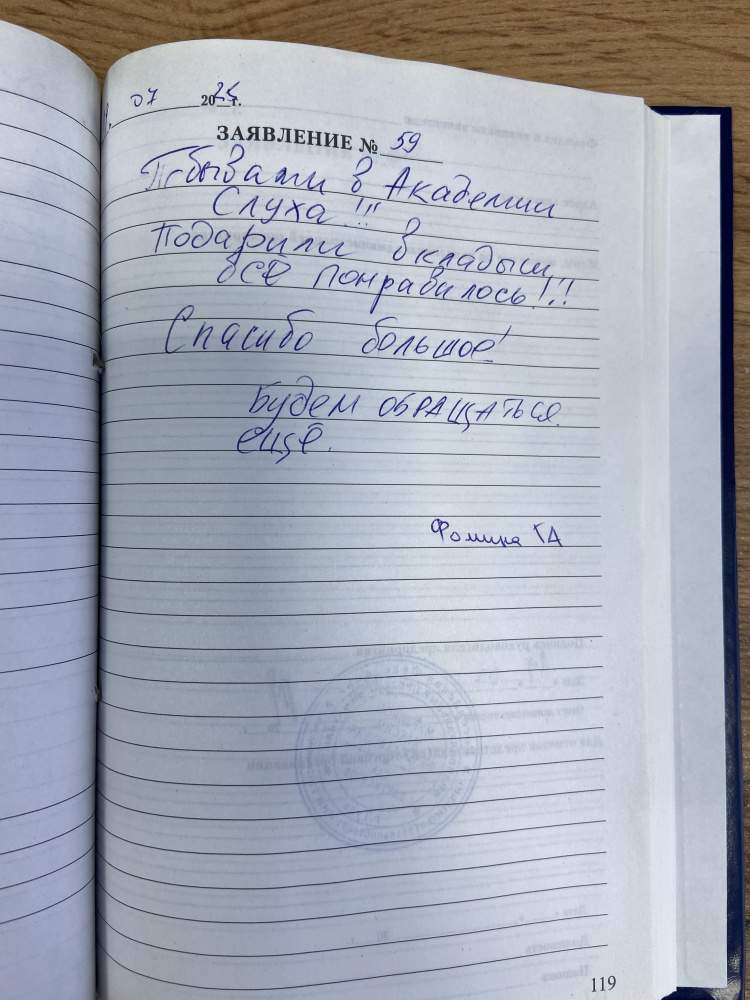 07 2024 г.
ЗАЯВЛЕНИЕ № 59
Побывали в Академии
Слуха!!!
Подарили вкладыши,
всё понравилось!!!
Спасибо большое!
Будем ОБРАЩАТЬСЯ.
ещё.
Фомина ГА
119